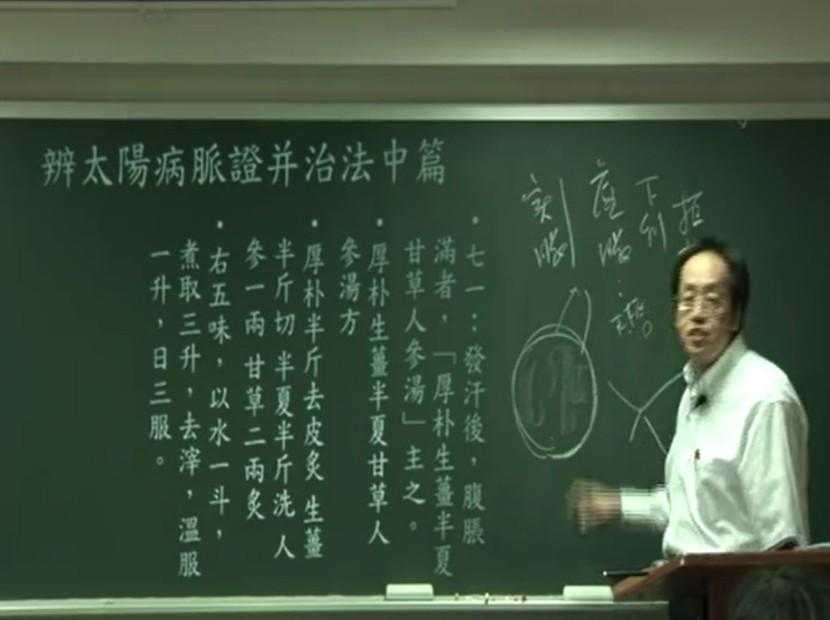 辨太陽病脈證并治法中篇
• 七一：發汗後，腹脹
滿者，「厚朴生薑半夏
甘草人參湯」主之。
• 厚朴生薑半夏甘草人
參湯方
• 厚朴半斤去皮炙 生薑
半斤切 半夏半斤洗 人
參一兩 甘草二兩炙
• 右五味，以水一斗，
煮取三升，去滓，溫服
一升，日三服。
下利
實脹
虛脹